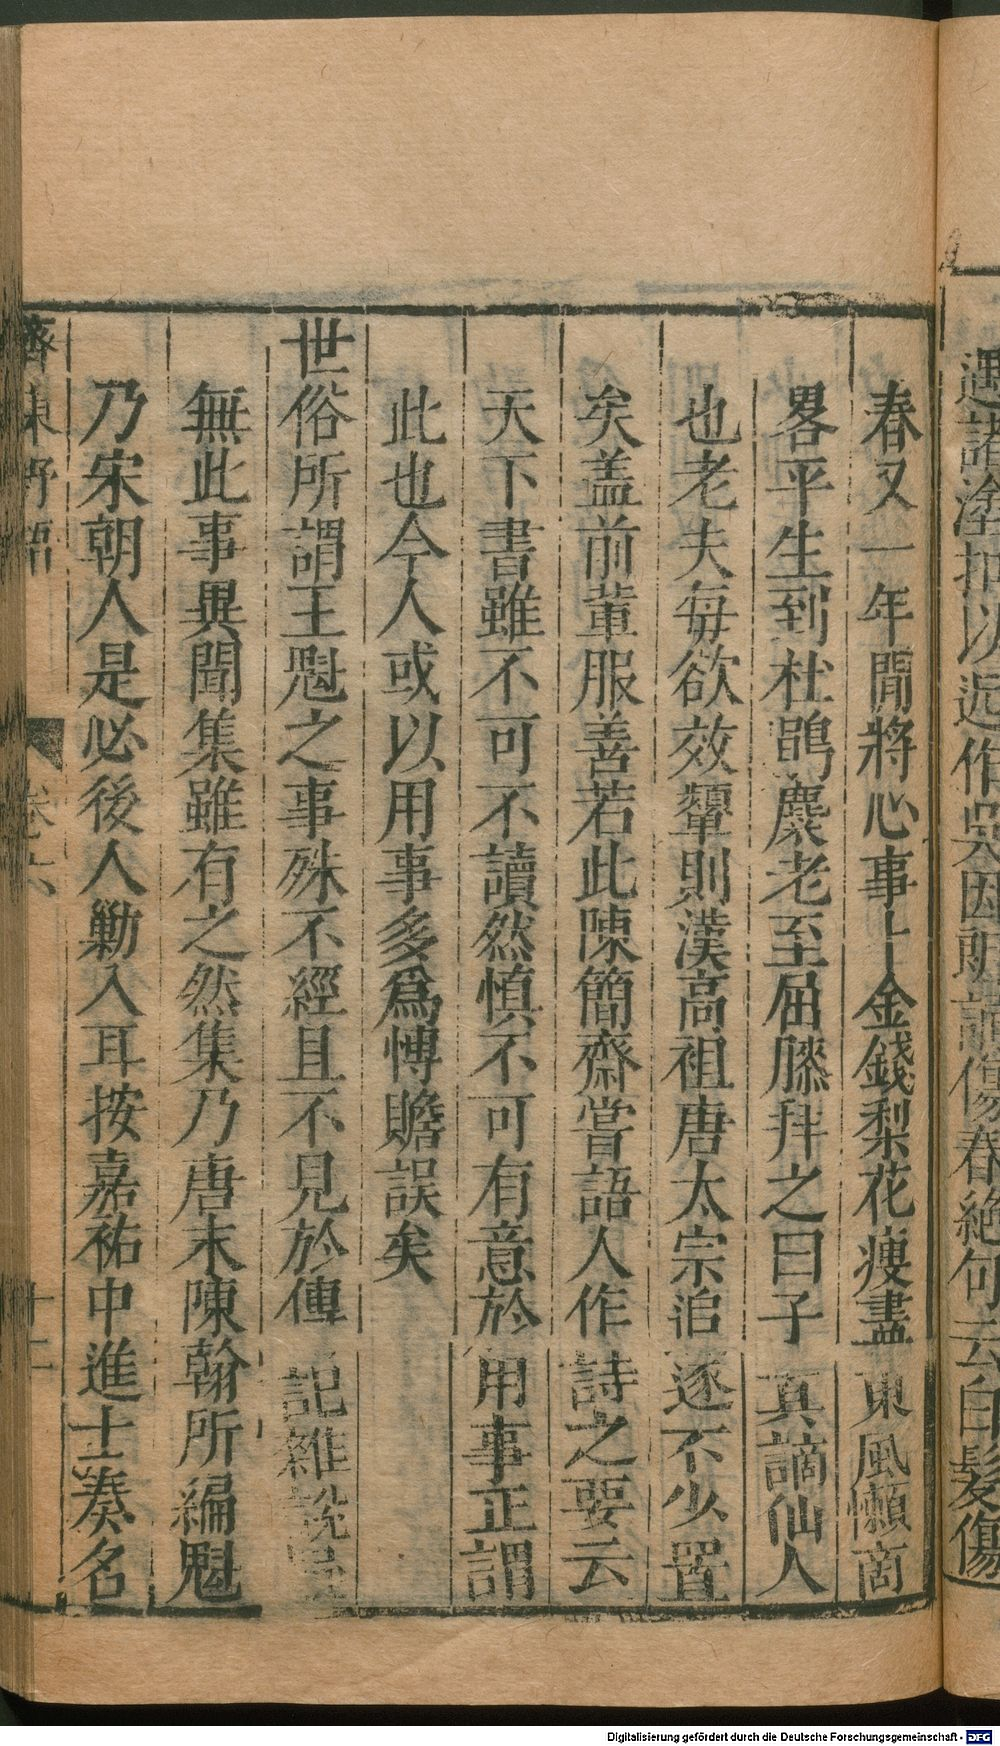 遇諸塗把以近作吳因朗誦傷春絶句云白髮傷
春又一年閒將心事卜金錢梨花瘦盡東風懶商
畧平生到杜鵑麋老至屈膝拜之曰子真謫仙人
也老夫每欲效顰則漢高祖唐太宗追逐不少置
矣盖前軰服善若此陳簡齋嘗語人作詩之要云
天下書雖不可不讀然慎不可有意於用事正謂
此也今人或以用事多爲博贍誤矣
世俗所謂王魁之事殊不經且不見於傳記雜說
無此事異聞集雖有之然集乃唐末陳翰所編魁
乃宋朝人是必後人勦入耳按嘉祐中進士奏名
齊東野語 卷六 十一
Digitalisierung gefördert durch die Deutsche Forschungsgemeinschaft - DFG